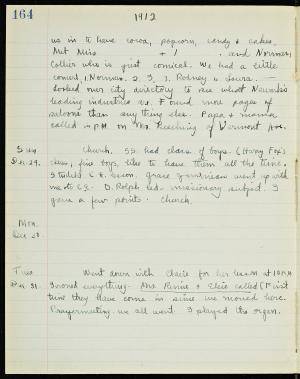 164
1912
us in to have cocoa, popcorn, candy & cakes.
Met Miss + 1 and Norman
Collier who is just comical. We had a little
contest, 1. Norman. 2. I. 3. Rodney & Laura. —
Looked over city directory to see what
leading industries are. Found more pages of
saloons than anything else. Papa & mama
called in P.M. on Mrs. of Vermont Ave.
Sun. Church. SS. had class of boys. (Harry Fox's
Dec. 29. class, fine boys, like to have them all the time.
Studied C.E. lesson. Grace & went up with
me to C.E. D. Rolph led - missionary subject. I
gave a few points. Church.
Mon.
Dec. 30.
Tues. Went down with Claire for her lesson at 10 A.M.
Dec. 31. Ironed everything. Mrs. & Elsie called (1st
time they have come in since we moved here.
Prayermeeting. we all went. I played the organ.